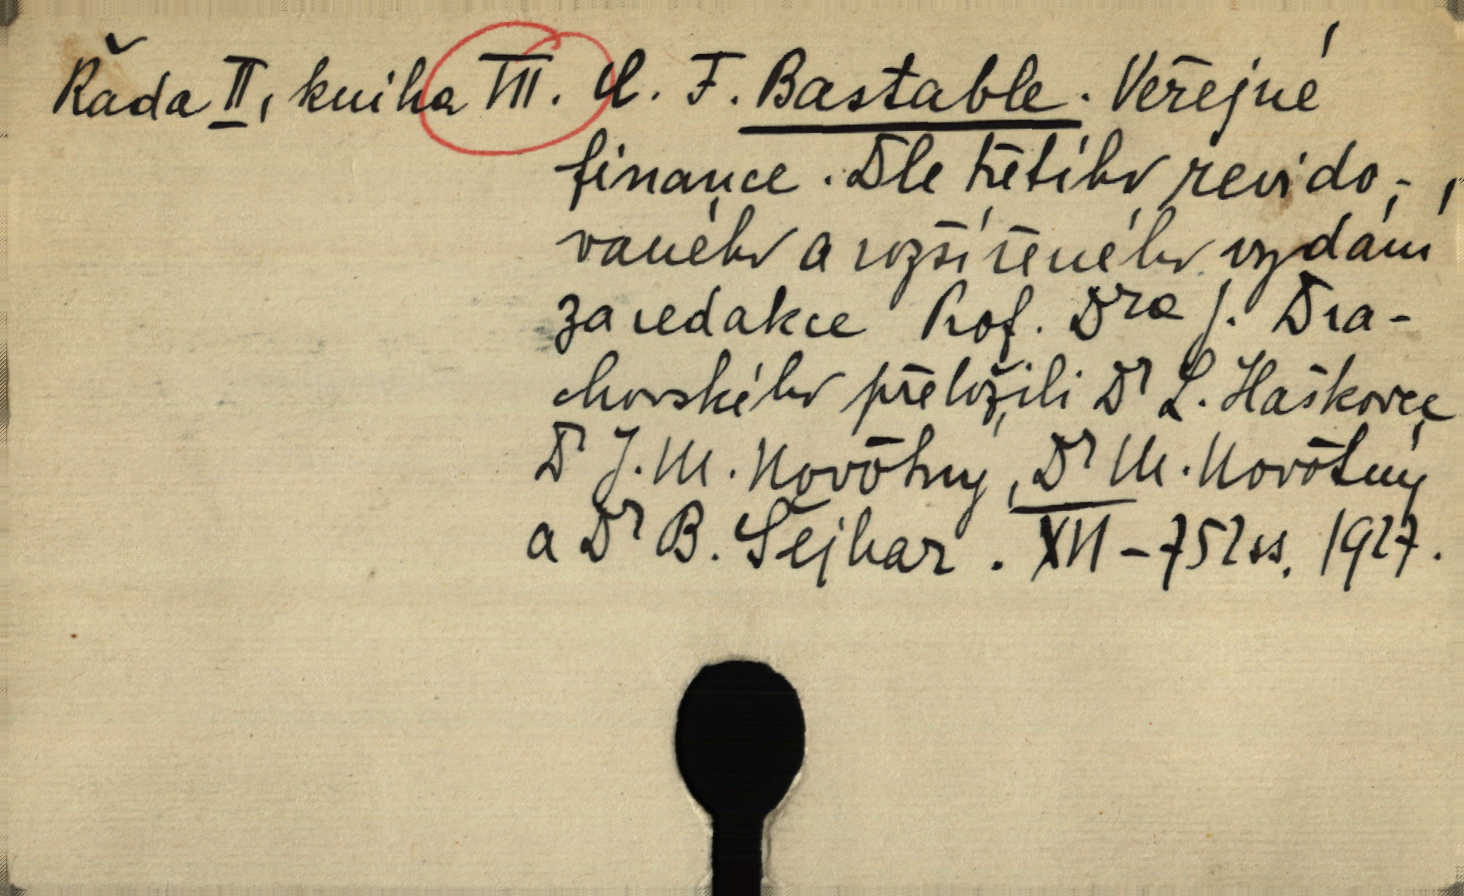 Řada II, kniha VII. C. F. Bastable. Veřejné
finance. Dle třetího revido-
vaného a rozšířeného vydání
za redakce Prof. Dra J. Dra-
chovského přeložili Dr L. Haškovec,
Dr J. M. Novotný, Dr M. Novotný
a Dr B. Šejhar. XII - 752 ss. 1927.